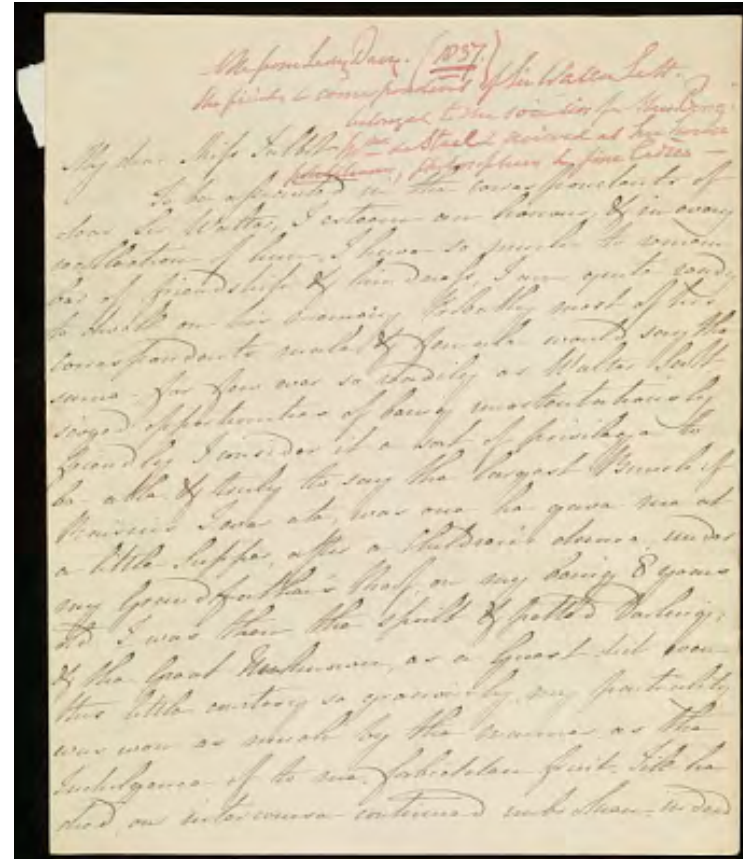 Note from Lady Davy. (1837.)
the friend & correspondent of Sir Walter Scott.
belonged to the societies
Mme de Stael & received at her house
philosophers & fine Ladies —
My dear Miss Talbot
To be appointed in the correspondents of
dear Sir Walter, I esteem an honour, & in every
recollection of him, I have so much to remem
ber of friendship & kindness, I am quite ready
to dwell on his memory. Probably most of his
correspondents male & female would say the
same. for few ever so readily as Walter Scott
seized opportunities of being unostentatiously
friendly. I consider it a sort of privilege to
be able & truly to say the largest Bunch of
Raisins I ever ate, was one he gave me at
a little Supper, after a Children's dance, under
my Grandfather's Roof, on my being 8 years
old I was then the spoilt & petted Darling,
& the Great Unknown, as a Guest did even
this little courtesy so graciously, my partiality
was won as much by the manner as the
Indulgence of to me, forbidden fruit. Till he
died, our intercourse continued unbroken indeed